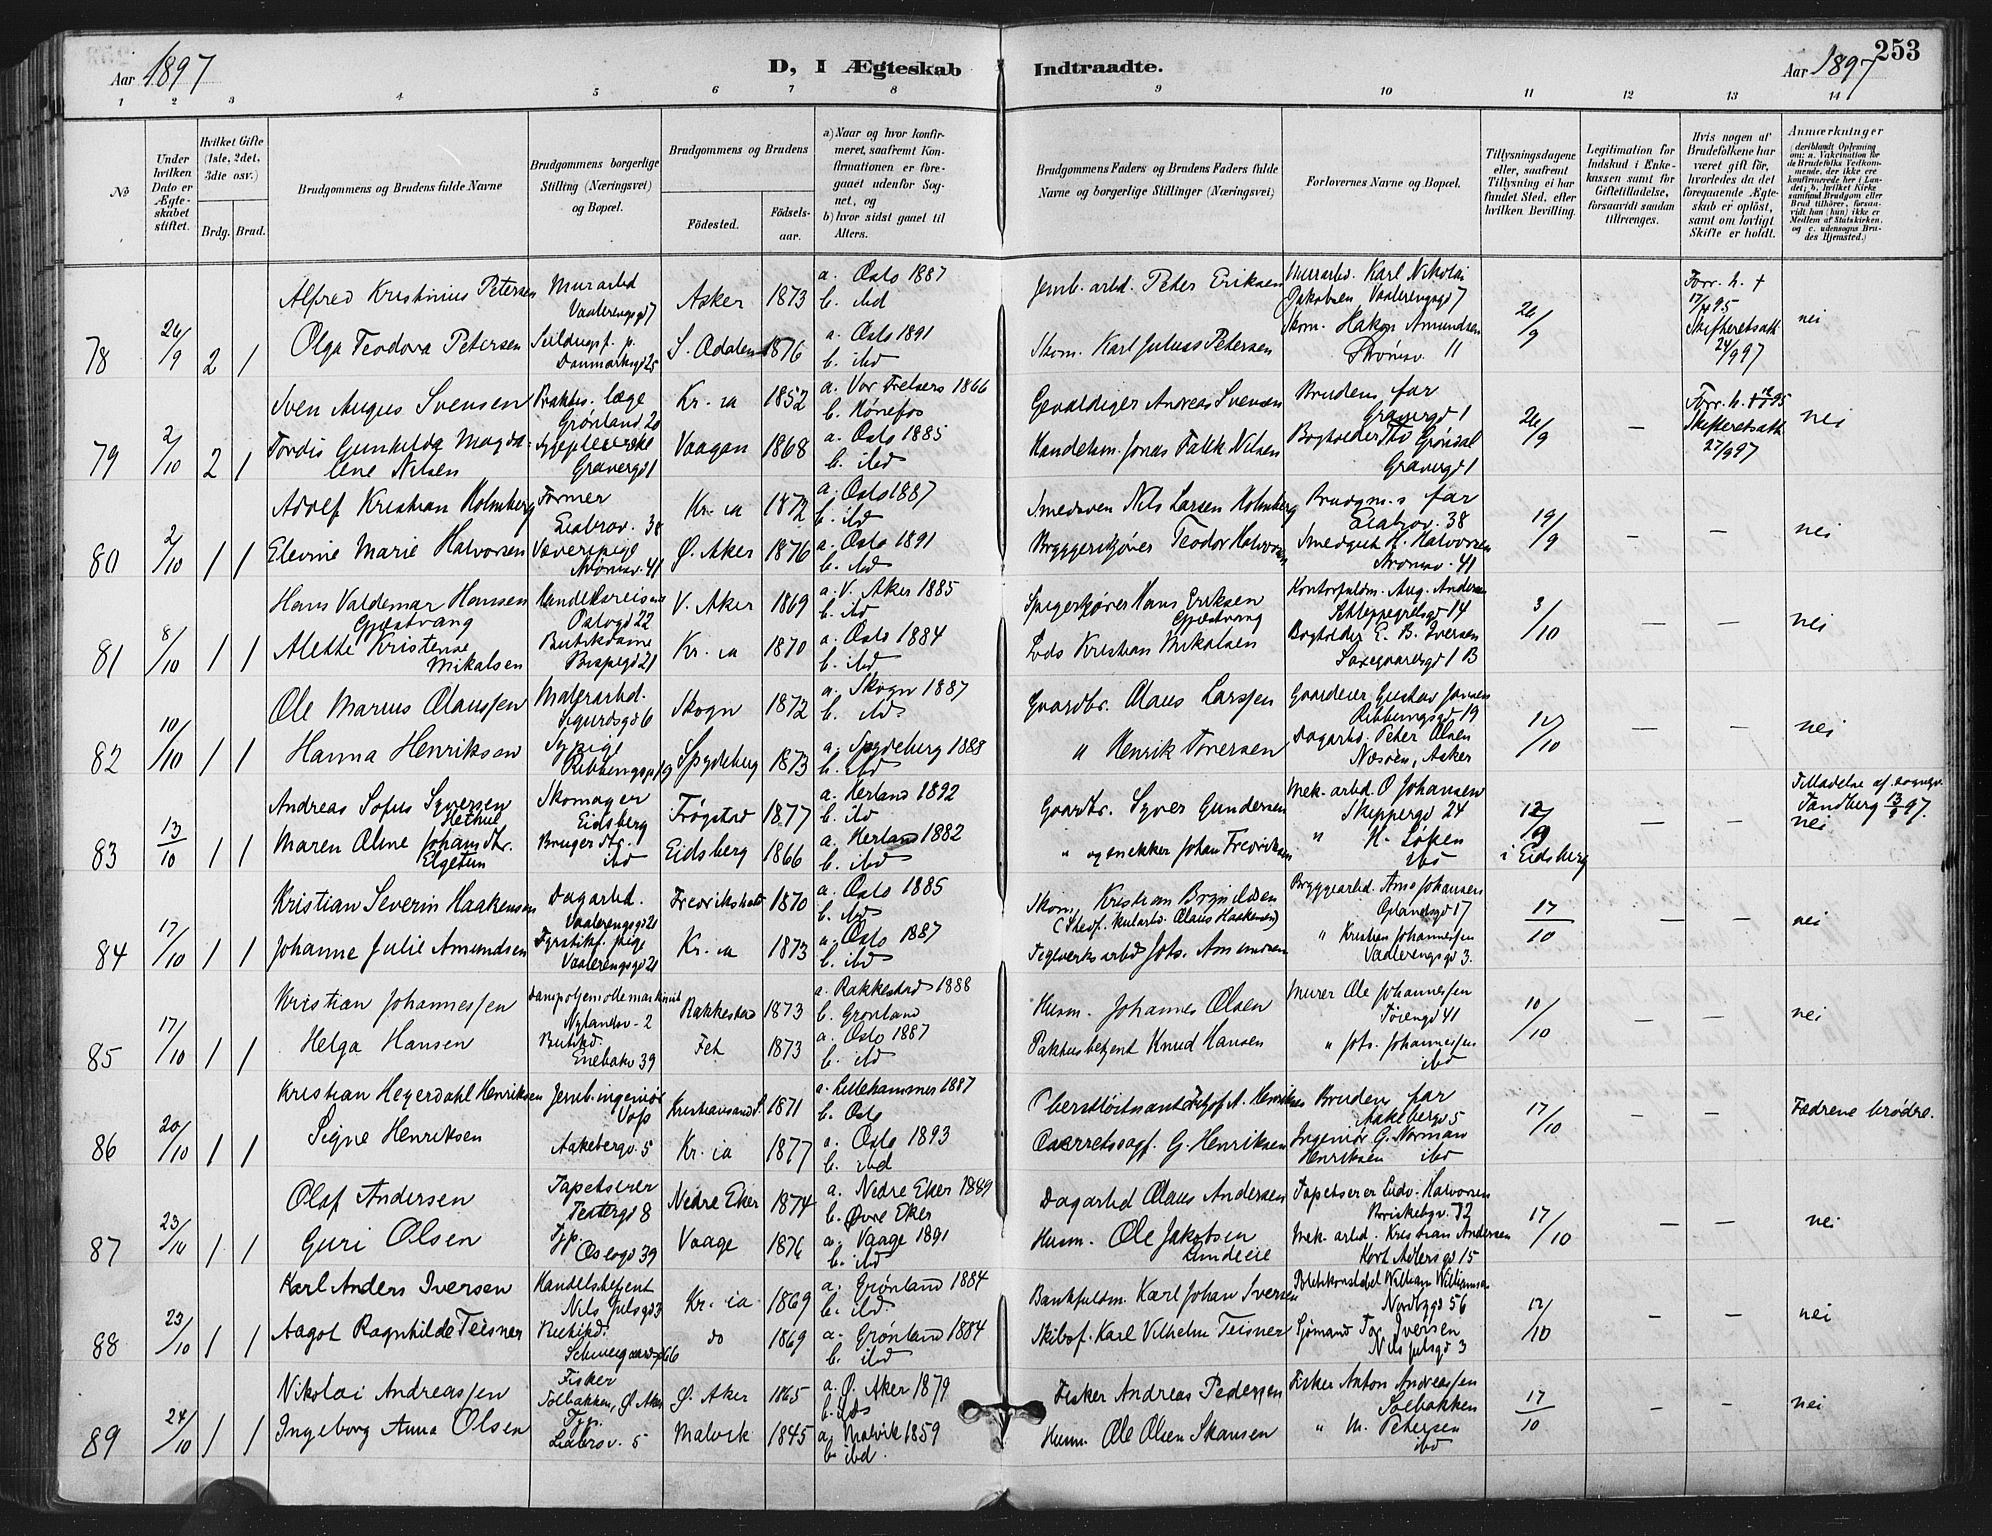 253
Aar 1897
D, I Ægteskab
Indtraadte.
Aar 1897
1 2 3 4 5 6 7 8 9 10 11 12 13 14
No
Under hvilken Dato er Ægteskabet stiftet.
Hvilket Gifte (1ste, 2det, 3die osv.)
Brdg. Brud.
Brudgommens og Brudens fulde Navne
Brudgommens borgerlige Stilling (Næringsvei) og Bopæl.
Brudgommens og Brudens
Fødested.
Fødselsaar.
a) Naar og hvor konfirmeret, saafremt Konfirmationen er foregaaet udenfor Sognet, og
b) hvor sidst gaaet til Alters.
Brudgommens Faders og Brudens Faders fulde Navne og borgerlige Stillinger (Næringsvei)
Forlovernes Navne og Bopæl.
Tillysningsdagene eller, saafremt Tillysning ei har fundet Sted, efter hvilken Bevilling.
Legitimation for Indskud i Enkekassen samt for Giftetilladelse, forsaavidt saadan tiltrænges.
Hvis nogen af Brudefolkene har været gift før, hvorledes da det foregaaende Ægteskab er opløst, samt om lovligt Skifte er holdt.
Anmærkninger (deriblandt Oplysning om: a. Vakcination for de Brudefolks Vedkommende, der ikke ere konfirmerede her i Landet; b. hvilket Kirkesamfund Brudgom eller Brud tilhører, forsaavidt han (hun) ikke er Medlem af Statskirken, og c. udensogns Brudes Hjemsted.)
78 26/9 2 1
Alfred Kristinius Petersen Murarbd Vaalerengsgd 7 Asker 1873 a. Oslo 1887 b. ibd
Jernb. arbd. Peder Eriksen Murarbd. Karl Nikolai Jakobsen Vaalerengsgd 7 26/9 Forr. h. + 17/4 95 Skifteretsatt 24/9 97 nei
Olga Teodora Petersen Danmarksgd 25 S. Odalen 1876 a. Oslo 1891 b. ibd
Skom. Karl Julius Petersen Skom. Hakon Amundsen Strømsv. 11
79 2/10 2 1
Sven August Svensen Praktis. læge Grønland 20 Kr.ia 1852 a. Vor Frelsers 1866 b. Hønefos
Gevaldiger Andreas Svensen Brudens far Gravergd 1 26/9 — Skifteretsatt 27/9 97 nei
Tordis Gunhilda Magdalene Nilsen Sygepleierske Gravergd 1 Vaagan 1868 a. Oslo 1885 b. ibd
Handelsm. Jonas Falck Nilsen Bogholder Th Grøndal Gravergd 1
80 2/10 1 1
Adolf Kristian Holmberg Former Eiabrov. 38 Kr.ia 1872 a. Oslo 1887 b. ibd
Smedsven Nils Larsen Holmberg Brudgm.s far Eiabrov. 38 19/9 — — nei
Elevine Marie Halvorsen Væverpige Strømsv. 41 Ø. Aker 1876 a. Oslo 1891 b. ibd
Bryggerikjører Teodor Halvorsen Smedgut H. Halvorsen Strømsv. 41
81 8/10 1 1
Hans Valdemar Hansen Gjæstvang Handelsreisende 22 V. Aker 1869 a. V. Aker 1885 b. ibd
Hans Eriksen Gjæstvang Kontorfuldm. Aug. Andersen Schleppegrelsgd 14 3/10 — — nei
Alette Kristense Mikalsen Butikdame Bispegd 21 Kr.ia 1870 a. Oslo 1884 b. ibd
Lods Kristian Mikalsen Bogholder E. B. Iversen Saxegaardsgd 1 B
82 10/10 1 1
Ole Marius Olaussen Malerarbd. Sigurdsgd 6 Skogn 1872 a. Skogn 1887 b. ibd.
Gaardbr. Olaus Larssen Gaardeier Gustav Jensen Ribbungsgd 19 12/10 — — nei
Hanna Henriksen Sypige Spydeberg 1873 a. Spydeberg 1888 b. ibd
" Henrik Iversen Dagarbd. Peter Olsen Næsøen, Asker
83 13/10 1 1
Andreas Sofus Syversen Skomager Eidsberg Trøgstad 1877 a. Herland 1892 b. ibd
Gaardbr. Syver Gundersen Mek. arbd. O Johansen Skippergd 24 12/9 i Eidsberg — — Tilladelse af sognepr. Sandberg 13/9 97. nei
Maren Oline Johansdtr. Elgetun ibd Eidsberg 1866 a. Herland 1882 b. ibd
" og snekker Johan Fredriksen " H. Løken ibd
84 17/10 1 1
Kristian Severin Haakensen Dagarbd. Vaalerengsgd 21 Fredrikshald 1870 a. Oslo 1885 b. ibd
Skom. Kristian Brynildsen (Stedf. Olaus Haakensen) Bryggearbd. Arne Johansen Oplandsgd 17 17/10 — — nei
Johanne Julie Amundsen Fyrstikf. pige Vaalerengsgd 21 Kr.ia 1873 a. Oslo 1887 b. ibd
Teglverksarbd Johs. Amundsen " Kristian Johannessen Vaalerengsgd 3.
85 17/10 1 1
Kristian Johannessen Nylandsv. 2 Rakkestad 1873 a. Rakkestad 1888 b. Grønland
Husm. Johannes Olsen Murer Ole Johannessen Tøiengd 41 10/10 — — nei
Helga Hansen Butikd. Enebakv 39 Fet 1873 a. Oslo 1887 b. ibd
Pakhusbetjent Knud Hansen " Johs. Johannessen ibd
86 20/10 1 1
Kristian Heyerdahl Henriksen Jernb. ingeniør Voss Kristiansand S. 1871 a. Lillehammer 1887 b. Oslo
Henriksen Brudens far Aakebergv 5 17/10 — — Fædrene brødre.
Signe Henriksen Aakebergv. 5 Kr.ia 1877 a. Oslo 1893 b. ibd
Overretssagf. G. Henriksen Ingeniør G. Norman Henriksen ibd
87 23/10 1 1
Olaf Andersen Tapetserer Nedre Eker 1874 a. Nedre Eker 1889 b. Øvre Eker
Dagarbd Olaus Andersen Tapetserer Ludv. Halvorsen Briskebyv. 72 17/10 — — nei
Guri Olsen Tjp. Oslogd 39 Vaage 1876 a. Vaage 1891 b. ibd
Husm. Ole Jakobsen Mek. arbd. Kristian Andersen Kort Adlersgd 15
88 23/10 1 1
Karl Anders Iversen Handelsbetjent Nils Julsgd 3 Kr.ia 1869 a. Grønland 1884 b. ibd.
Bankfuldm. Karl Johan Iversen Politikonstabel William Williamsen Nordbygd 56 12/10 — — nei
Aagot Ragnhilde Teisner Butikd. Schweigaardsgd 66 do 1869 a. Grønland 1884 b. ibd
Skibsf. Karl Vilhelm Teisner Sjømand Tor Iversen Nils Julsgd 3
89 24/10 1 1
Nikolai Andreassen Fisker Solbakken, Ø. Aker Ø. Aker 1865 a. Ø. Aker 1879 b. ibd
Fisker Andreas Pedersen Fisker Anton Andreassen Solbakken 17/10 — — nei
Ingeborg Anna Olsen Tjp. 5 Malvik 1845 a. Malvik 1859 b. ibd.
Husm. Ole Olsen Skansen " M. Petersen ibd